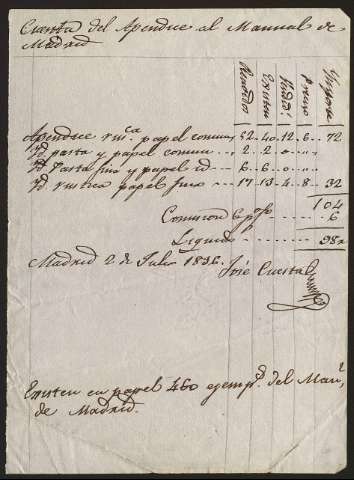 Cuenta del Apendice al Manual de
Madrid
Recibidos Existen Vendi.s Precio Importe
Apendice rus.ca papel comun, 52 - 40 - 12 - 6 - - 72
Yd pasta y papel comun - - 2 - 2 - " - " - -
Yd Pasta fina y papel id - - 6 - 6 - " - " - -
Yd rustica papel fino - - - 17 - 13 - 4 - 8 - - 32
104
Comision 6 p% - - - - - 6
Liquido - - - - - - 98
Madrid 2 de Julio 1836.
José Cuesta
Existen en papel 460 ejemp.s del Man.l
de Madrid.